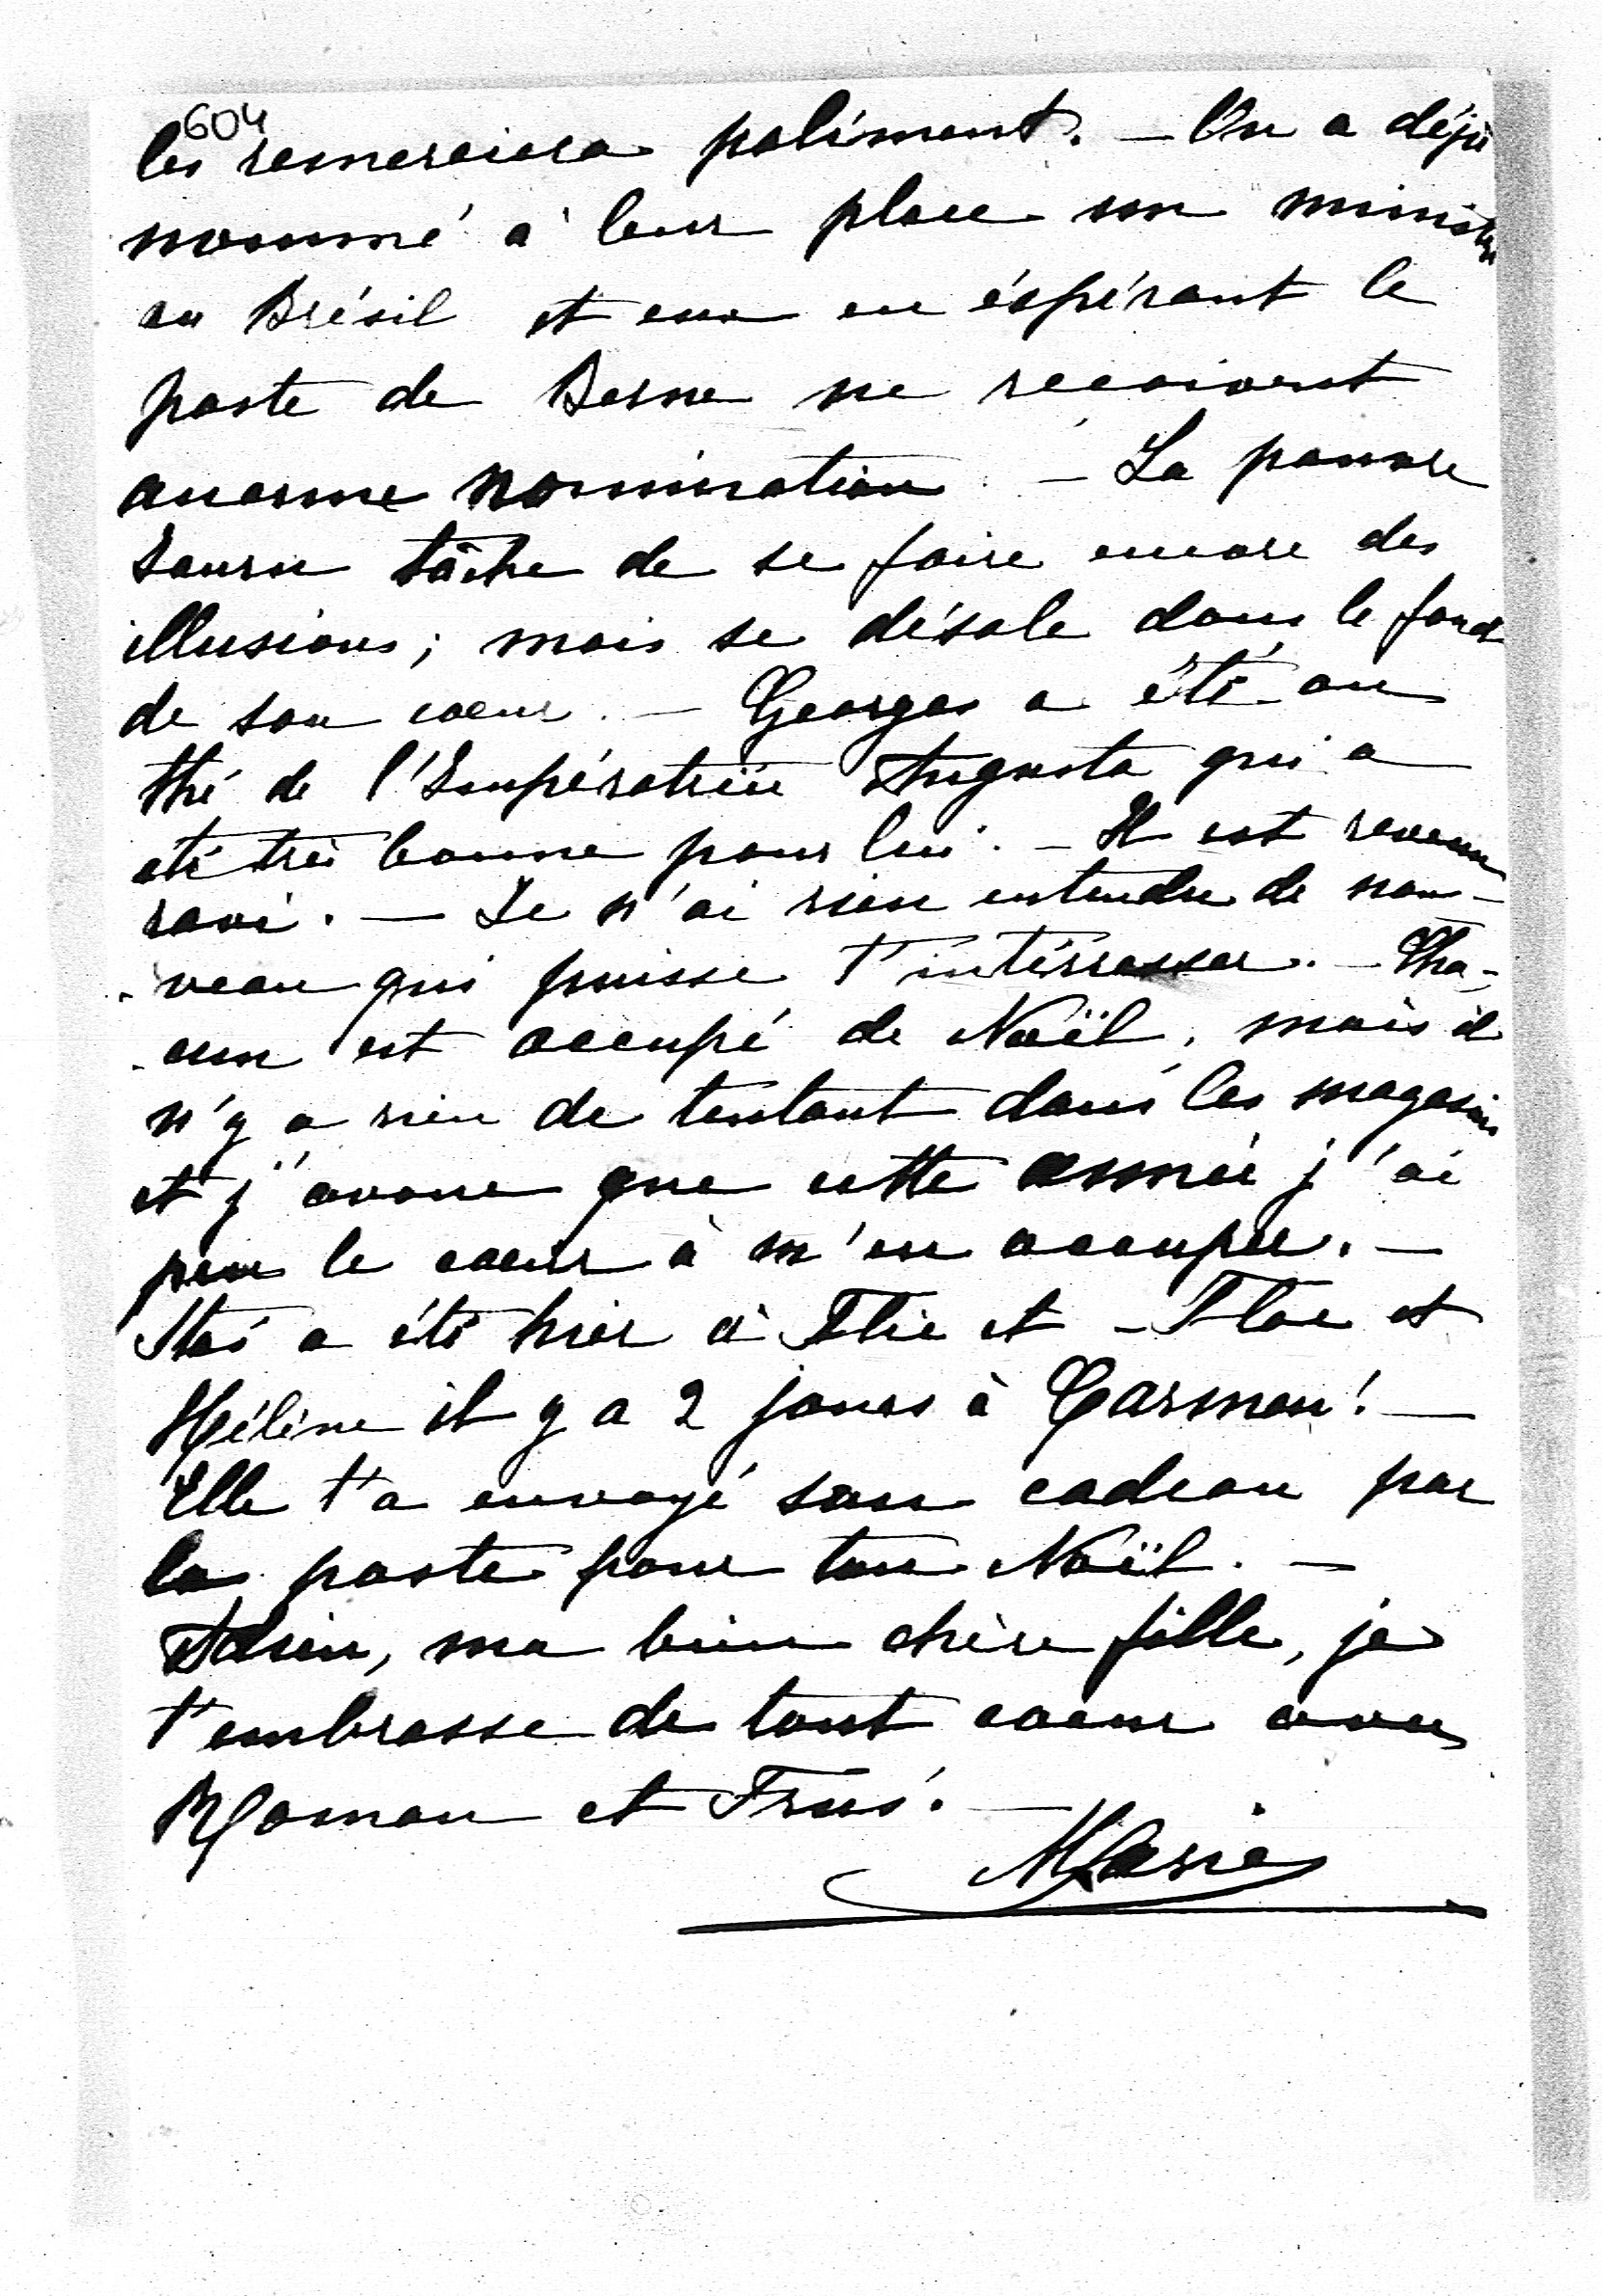 604
les remerciera poliment. — On a déjà
nommé à leur place un ministre
au Brésil et eux en éspérant le
poste de Berne ne recoivent
aucune nomination. — La pauvre
Laura tâche de se faire encore des
illusions ; mais se désole dans le fond
de son coeur. — Georges a été au
thé de l'Impératrice Augusta qui a
été très bonne pour lui. — Il est revenu
ravi. — Je n'ai rien entendu de nou-
-veau qui puisse t'intérresser. — Cha-
-cun est occupé de Noël, mais il
n'y a rien de tentant dans les magasins
et j'avoue que cette année j'ai
peu le coeur à m'en occuper. —
a été hier à et - et
Hélène il y a 2 jours à Carmen ! —
Elle t'a envoyé son cadeau par
la poste pour ton Noël. —
Adieu, ma bien chère fille, je
t'embrasse de tout coeur avec
Maman et
Marie